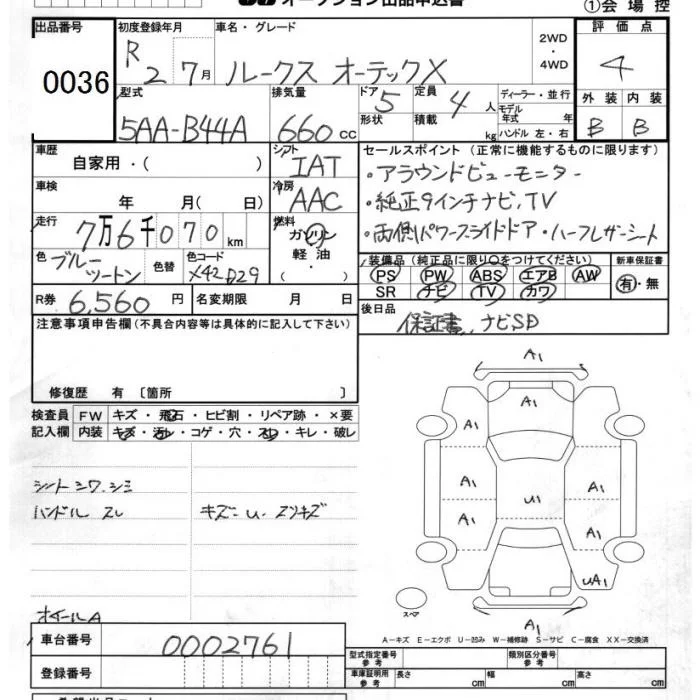 オークション出品申込書
①会場控
出品番号
0036
初度登録年月
R2 7月
車名・グレード
ルークス オーテックX
2WD
・
4WD
評価点
4
型式
5AA-B44A
排気量
660 cc
ドア 5
形状
定員 4 人
積載 kg
ディーラー・並行
モデル
年式 年
ハンドル 左・右
外装 内装
B B
車歴
自家用・( )
シフト
IAT
セールスポイント (正常に機能するものに限ります)
・アラウンドビューモニター
・純正9インチナビ,TV
・両側パワースライドドア・ハーフレザーシート
車検
年 月( 日)
冷房
AAC
走行
7万6千070km
燃料
ガソリン
・
軽油
・
( )
色 ブルーツートン
色替
色コード
X42 D29
装備品 (純正品に限り○をつけてください)
PS PW ABS エアB AW
SR ナビ TV カワ
新車保証書
有・無
R券 6,560 円
名変期限 月 日
後日品
保証書, ナビSD
注意事項申告欄(不具合内容等は具体的に記入して下さい)
修復歴 有 〔箇所 〕
検査員
記入欄
FW キズ・飛石・ヒビ割・リペア跡・×要
内装 キズ・汚レ・コゲ・穴・スレ・キレ・破レ
シートシワ.シミ
ハンドル スレ
キズ- U. スリキズ
ホイールA
A1
A1
A1 A1
A1
U1
A1
UA1
A1
スペア
A－キズ E－エクボ U－凹み W－補修跡 S－サビ C－腐食 XX－交換済
車台番号
0002761
登録番号
型式指定番号
参考
類別区分番号
参考
車庫証明用
参考
長さ cm
幅 cm
高さ cm